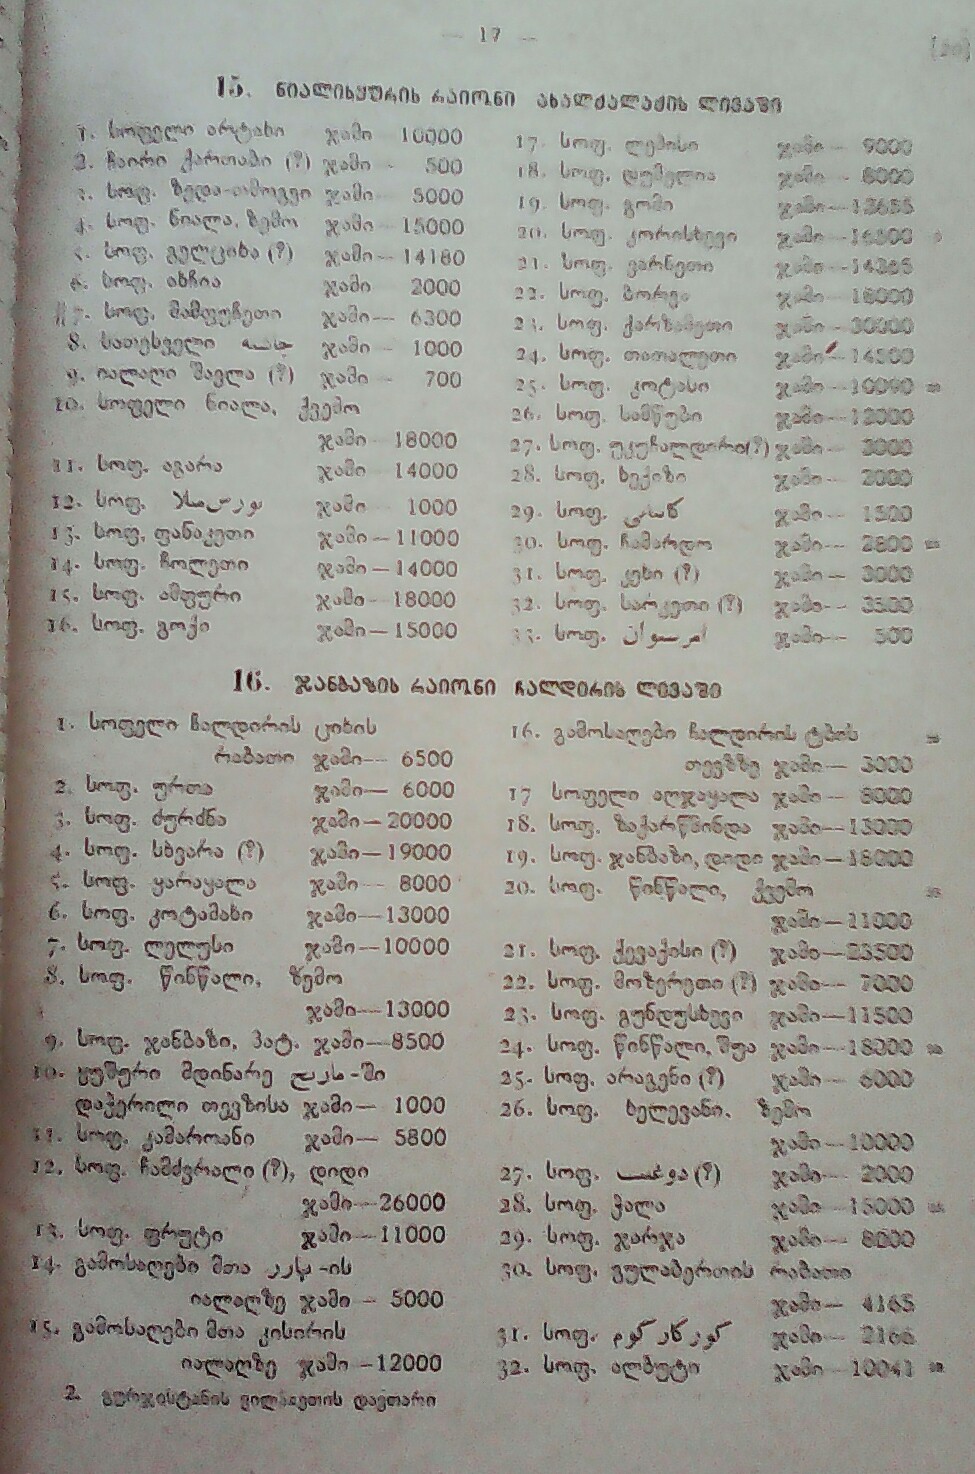 — 17 —
[20]
15. ნიალისყურის რაიონი ახალქალაქის ლივაში
1. სოფელი არტახი ჯამი 10000
2. ჩაირი ქართაბი (?) ჯამი — 500
3. სოფ. ზედა-თმოგვი ჯამი 5000
4. სოფ. ნიალა, ზემო ჯამი — 15000
5. სოფ. გელციხა (?) ჯამი — 14180
6. სოფ. ახჩია ჯამი 2000
7. სოფ. მამფუჩეთი ჯამი — 6300
8. სათესველი ჯამი — 1000
9. იალაღი შავლა (?) ჯამი 700
10. სოფელი ნიალა, ქვემო
ჯამი 18000
11. სოფ. აგარა ჯამი 14000
12. სოფ. ჯამი 1000
13. სოფ. ფანაკეთი ჯამი — 11000
14. სოფ. ჩოლეთი ჯამი — 14000
15. სოფ. ამფური ჯამი — 18000
16. სოფ. გოქი ჯამი — 15000
17. სოფ. ლემისი ჯამი — 9000
18. სოფ. დუმელია ჯამი — 8000
19. სოფ. გომი ჯამი —
20. სოფ. კორისხევი ჯამი — 16500
21. სოფ. ვარნეთი ჯამი —
22. სოფ. ჯამი — 18000
23. სოფ. ქარზამეთი ჯამი — 30000
24. სოფ. თათალეთი ჯამი — 14500
25. სოფ. კოტასი ჯამი —
26. სოფ. სამწუბი ჯამი —
27. სოფ. უკუჩალდირი (?) ჯამი — 3000
28. სოფ. ხექიზი ჯამი — 2000
29. სოფ. ჯამი — 1500
30. სოფ. ჩამარდო ჯამი — 2800
31. სოფ. კუხი (?) ჯამი — 3000
32. სოფ. სარკეთი (?) ჯამი — 3500
33. სოფ. ჯამი — 500
16. ჯანბაზის რაიონი ჩალდირის ლივაში
1. სოფელი ჩალდირის ციხის
რაბათი ჯამი — 6500
2. სოფ. ურთა ჯამი — 6000
3. სოფ. ძურძნა ჯამი — 20000
4. სოფ. სბვარა (?) ჯამი — 19000
5. სოფ. ყარაყალა ჯამი — 8000
6. სოფ. კოტამახი ჯამი — 13000
7. სოფ. ლელუსი ჯამი — 10000
8. სოფ. წინწალი, ზემო
ჯამი — 13000
9. სოფ. ჯანბაზი, პატ. ჯამი — 8500
10. ყუშური მდინარე -ში
დაჭერილი თევზისა ჯამი — 1000
11. სოფ. კამაროანი ჯამი — 5800
12. სოფ. ჩამძვრალი (?), დიდი
ჯამი — 26000
13. სოფ. ფრუტი ჯამი — 11000
14. გამოსაღები მთა -ის
იალაღზე ჯამი — 5000
15. გამოსაღები მთა კისირის
იალაღზე ჯამი — 12000
16. გამოსაღები ჩალდირის ტბის
თევზზე ჯამი — 3000
17 სოფელი აღჯაყალა ჯამი — 8000
18. სოფ. ზაქარწმინდა ჯამი — 13000
19. სოფ. ჯანბაზი, დიდი ჯამი — 18000
20. სოფ. წინწალი, ქვემო
ჯამი — 11000
21. სოფ. ქევაქისი (?) ჯამი — 23500
22. სოფ. მოზერეთი (?) ჯამი — 7000
23. სოფ. გუნდუსხევი ჯამი — 11500
24. სოფ. წინწალი, შუა ჯამი — 18000
25. სოფ. არაგენი (?) ჯამი — 6000
26. სოფ. ხელევანი, ზემო
ჯამი — 10000
27. სოფ. (?) ჯამი — 2000
28. სოფ. ჭალა ჯამი — 15000
29. სოფ. ჯარჯა ჯამი — 8000
30. სოფ. ვულაბერთის რაბათი
ჯამი — 4165
31. სოფ. ჯამი —
32. სოფ. ალბუტი ჯამი — 10041
2. გურჯისტანის ვილაიეთის დავთარი